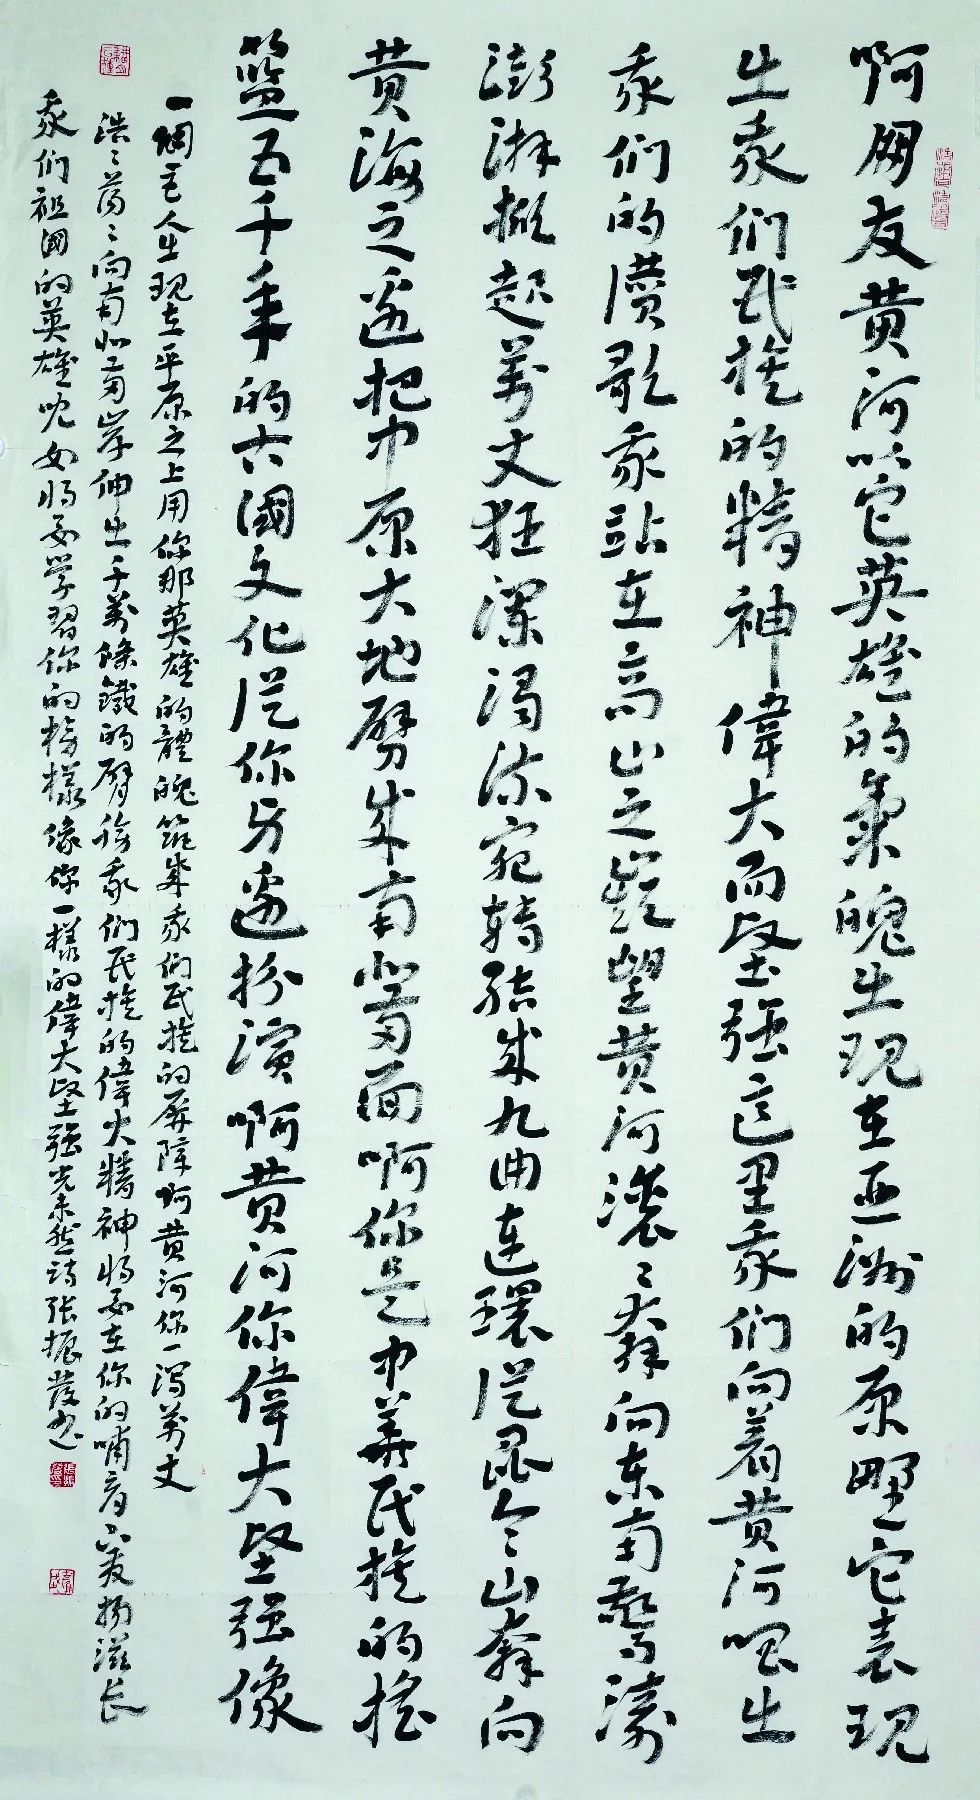 啊朋友黄河以它英雄的气魄出现在亚洲的原野它表现
出我们民族的精神偉大而坚强这里我们向着黄河唱出
我们的讚歌我站在高山之巅望黄河滚〻奔向东南惊涛
澎湃掀起萬丈狂澜濁流宛轉结成九曲连環从昆仑山奔向
黄海之邊把中原大地劈成南北兩面啊你是中华民族的摇
籃五千年的古國文化从你方邊扮演啊黄河你偉大坚强像
一個巨人出现在平原之上用你那英雄的體魄筑成我们民族的屏障啊黄河你一瀉萬丈
浩〻蕩〻向南北兩岸伸出千萬條鐵的臂膀我们民族的偉大精神将要在你的哺育下发揚滋长
我们祖國的英雄児女将要学習你的榜樣像你一樣的偉大坚强光未然诗张振发书